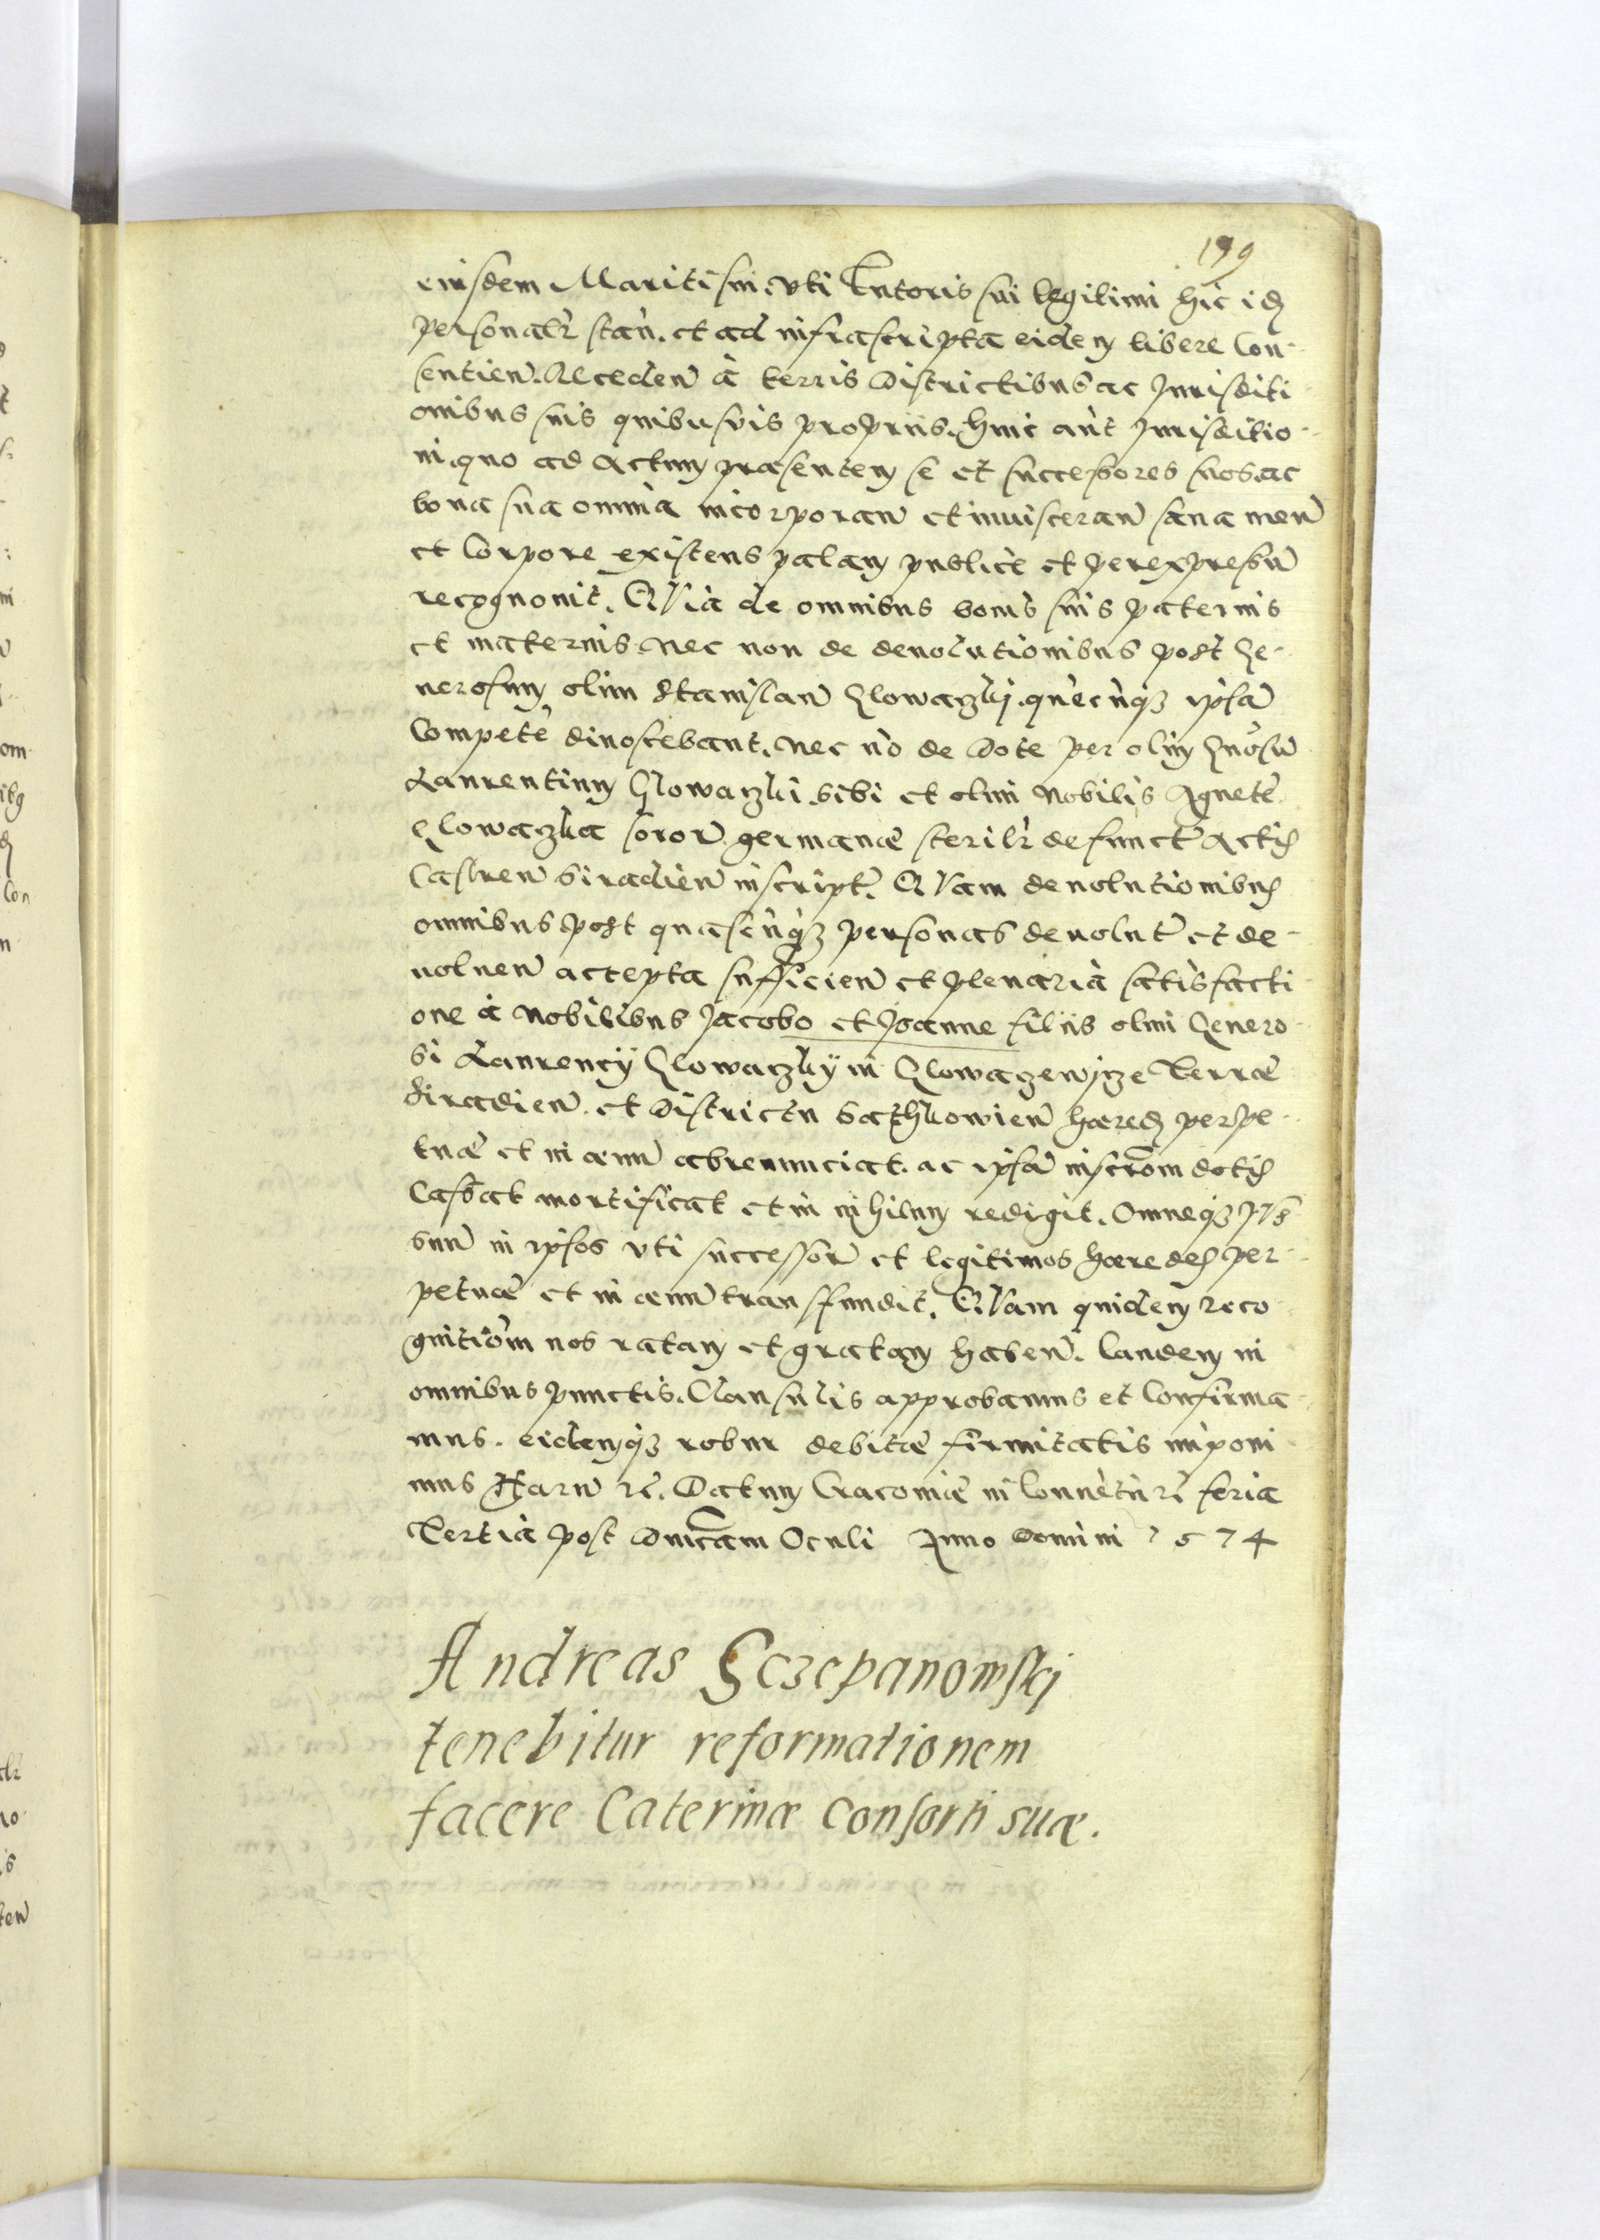 199
eiusdem Mariti sui, vti Tutoris sui legitimi hic id
personalr stan. et ad infrascripta eidem libere Con-
sentien. Receden à terris Districtibus ac Jurisditi-
onibus suis quibusvis proprijs. huic aut Jurisditio-
ni, quo ad Actum præsentem se et successores suos, ac
bona sua omnia incorporan et inuisceran sana men
et Corpore existens palam publicè et per expressum
recognouit. QVia de omnibus bonis suis paternis
et maternis, nec non de deuolutionibus post Ge-
nerosum olim Stanislaum Glowaczkj. quecunqz ipsam
Compete dinoscebant, nec no de Dote per olim Gnosum
Laurentium Glowaczki sibi et olim Nobilis Agnete
Glowaczka soror germanæ sterilr defunct Actis
Castren Siradien inscript. QVam deuolutionibus
omnibus post quascunqz personas deuolut et de-
uoluen accepta sufficien et plenaria satisfacti
one à Nobilibus Jacobo et Joanne filijs olim Genero-
si Laurencij Glowaczkij in Glowaczewjcze Terræ
Siradien. et Districtu Sathkowien hæred perpe-
tuæ et in æuum abrenunciat. ac ipsam inscrom dotis
Cassat mortificat et in nihilum redigit. Omneqz JVS
suum in ipsos vti successor et legitimos hæredes per-
petuæ et in æuum transfundit. QVam quidem reco-
gnitiom nos ratam et gratam haben. Eandem in
omnibus punctis. Clausulis approbamus et Confirma-
mus. eidemqz robur debitæ firmitatis imponi
mus Harum rc. Datum Cracouiæ in Conuetu rc feria
Tertia post Dnicam Oculi Anno Domini 1574
Andreas Sczepanowskj
tenebitur reformationem
facere Caterinæ Consorti suæ.